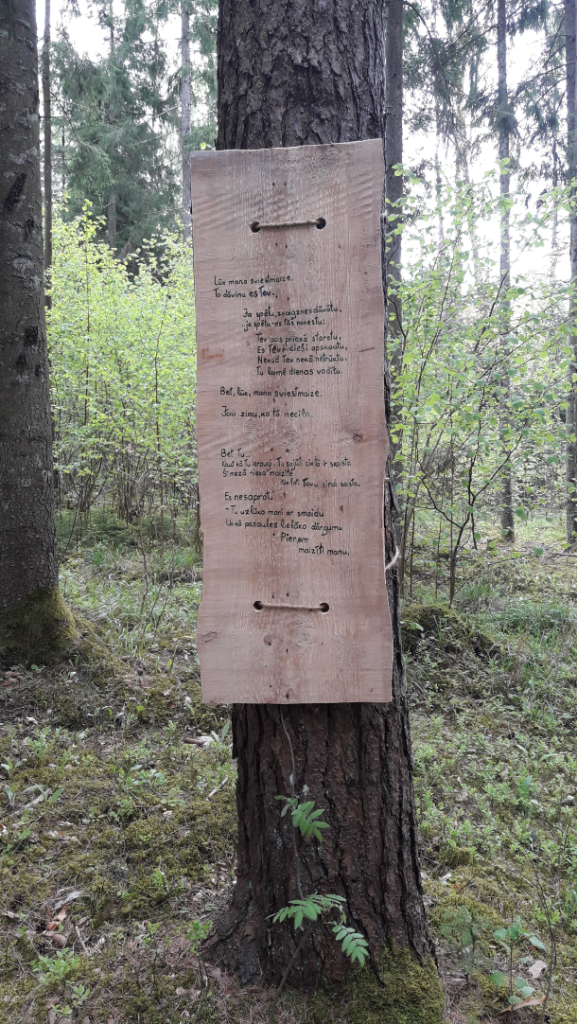 Lūk mana sviestmaize.
To dāvinu es Tev.
Ja spētu, zvaigznes dāvātu,
ja spētu es tās nonest.
Tev pas priekā starotu,
Es Tevi cieši apskautu,
Nekad Tev nekā netrūktu,
Tu laimē dienas vadītu.
Bet, lūk, mana sviestmaize.
Jau zinu, ka tā necila.
Bet Tu...
maizīte
Es nesaprotu
- Tu uzlūko mani ar smaidu
Un kā pasaules lielāko dārgumu
Pieņem
maizīti manu.